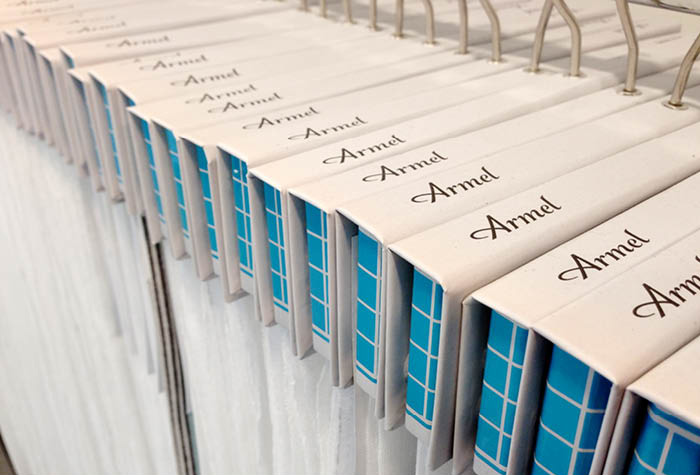 Armel
Armel
Armel
Armel
Armel
Armel
Armel
Armel
Armel
Armel
Armel
Armel
Armel
Armel